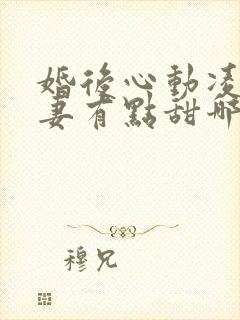 婚後心動凌
妻有點甜
穆兄